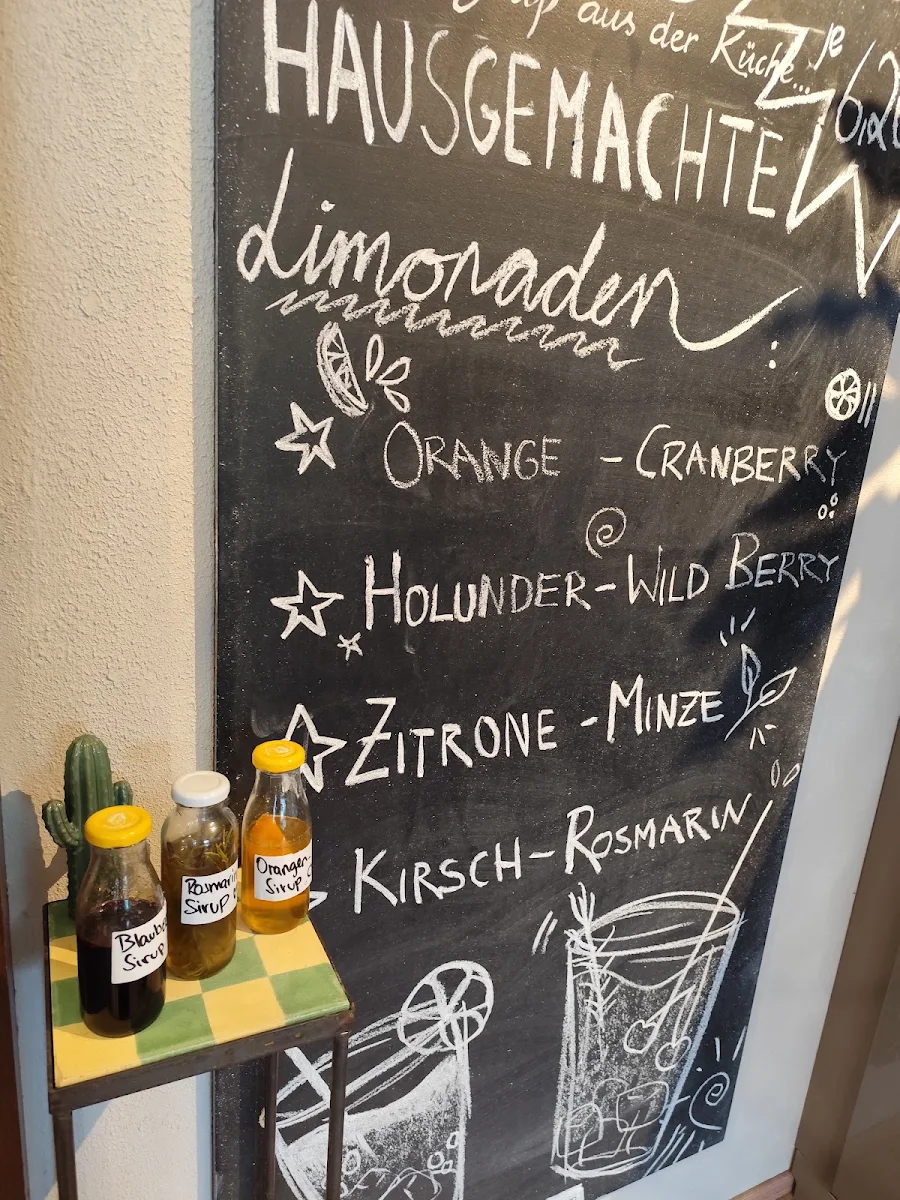 aus der Küche...
je
HAUSGEMACHTE
Limonaden
:
ORANGE - CRANBERRY
HOLUNDER - WILD BERRY
ZITRONE - MINZE
KIRSCH - ROSMARIN
Orangen-
Sirup
Rosmarin
Sirup
Sirup